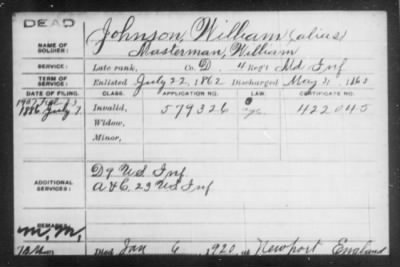 DEAD
Johnson, William (alias)
NAME OF SOLDIER: Masterman, William
SERVICE: Late rank, Co. D. 4 Reg't Md Inf
TERM OF SERVICE: Enlisted July 22, 1862 Discharged May 31, 1865
DATE OF FILING. CLASS. APPLICATION NO. LAW. CERTIFICATE NO.
1886 July 7. Invalid, 579326 422045
Widow,
Minor,
ADDITIONAL SERVICES: D 9 U.S. Inf.
A & C. 23 US Inf
REMARKS:
Died Jan 6, 1920, at Newport England